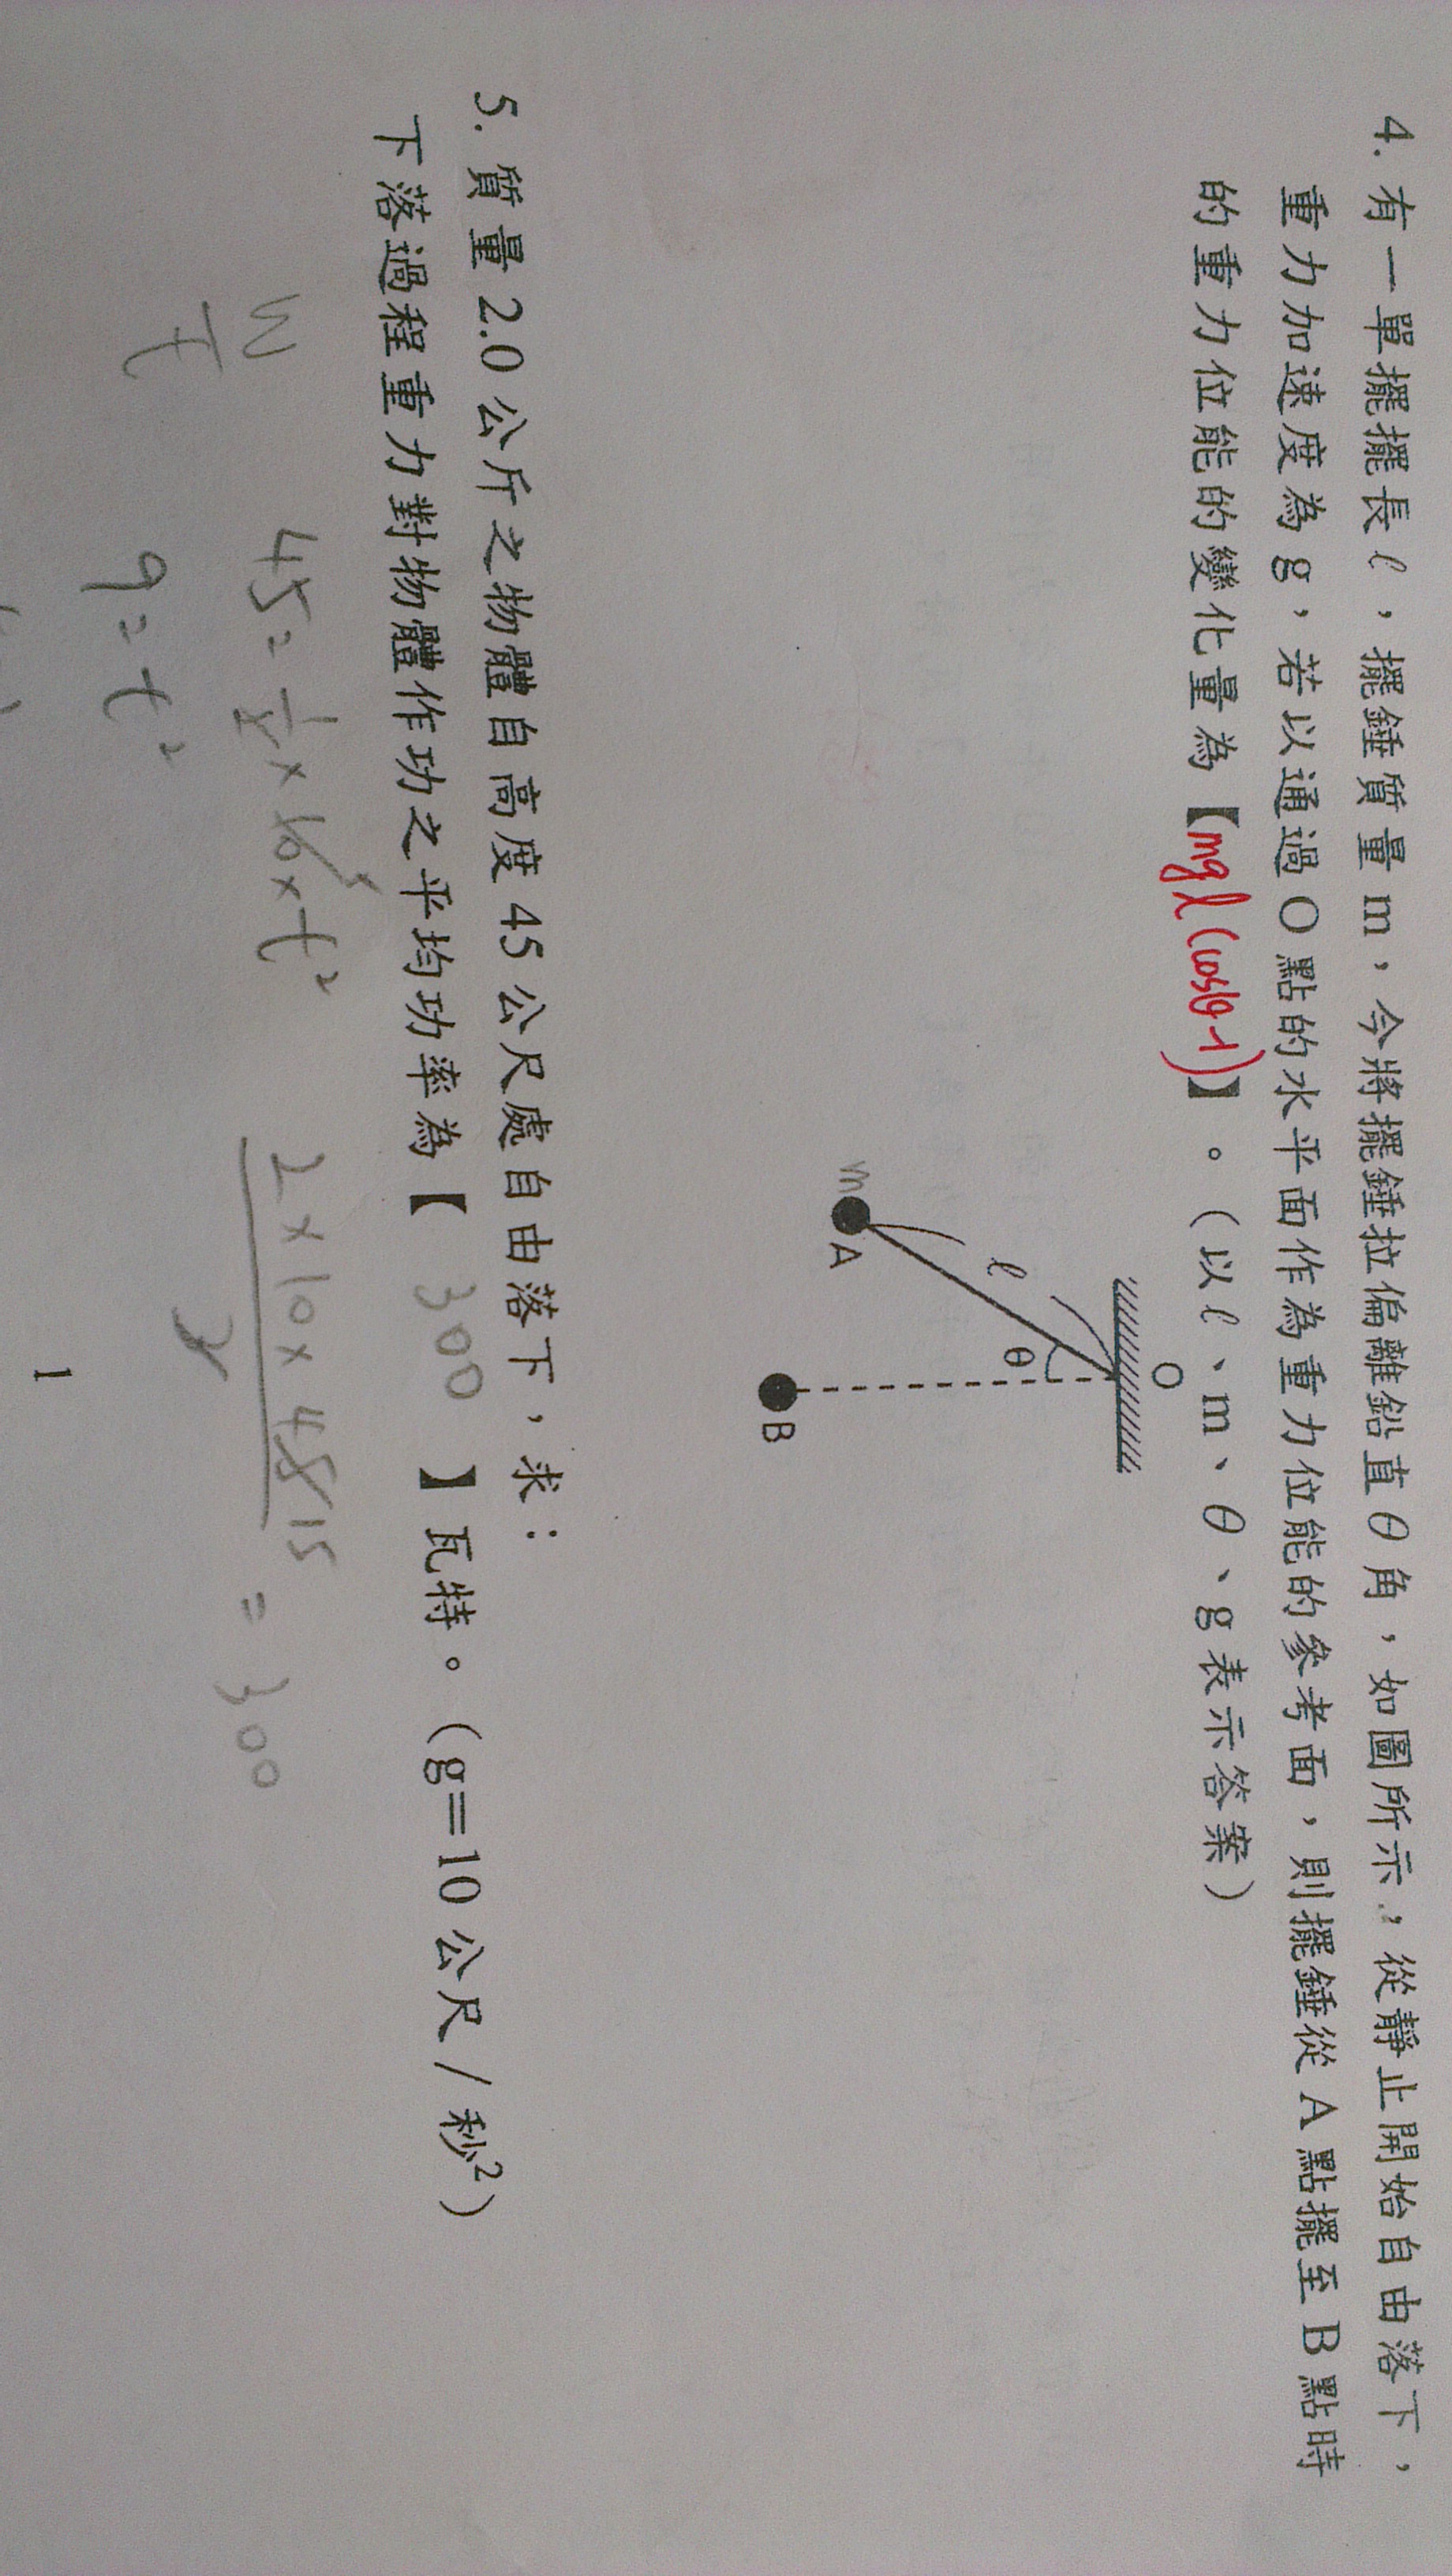 4. 有一單擺擺長ℓ，擺錘質量m，今將擺錘拉偏離鉛直θ角，如圖所示，從靜止開始自由落下，
重力加速度為g，若以通過O點的水平面作為重力位能的參考面，則擺錘從A點擺至B點時
的重力位能的變化量為【mgl(cosθ-1)】。（以ℓ、m、θ、g表示答案）
O
θ
ℓ
m
A
B
5. 質量2.0公斤之物體自高度45公尺處自由落下，求：
下落過程重力對物體作功之平均功率為【 300 】瓦特。（g＝10公尺／秒²）
W/t
45=1/2×10×t²
9=t²
2×10×45 15/3 = 300
1